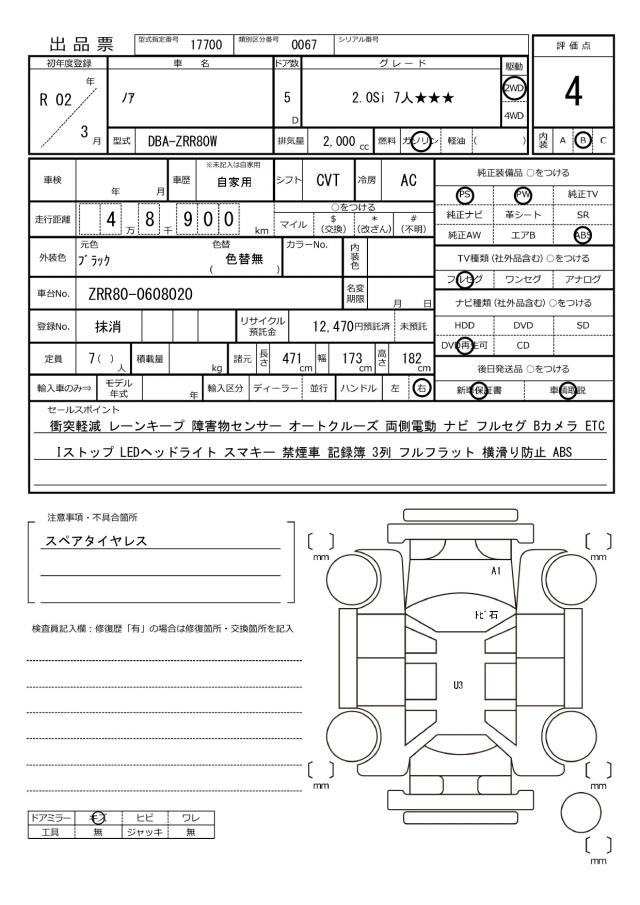 出品票 型式指定番号 17700 類別区分番号 0067 シリアル番号
評価点
初年度登録 車名 ドア数 グレード 駆動
R 02 年 3 月 ノア 5 D 2.0Si 7人★★★ 2WD 4WD 4
型式 DBA-ZRR80W 排気量 2,000 cc 燃料 ガソリン 軽油 ( ) 内装 A B C
車検 年 月 車歴 ※未記入は自家用 自家用 シフト CVT 冷房 AC
走行距離 4 万 8 千 9 0 0 km ○をつける
マイル $ (交換) * (改ざん) # (不明)
外装色 元色 ブラック 色替 ( 色替無 ) カラーNo. 内装色
車台No. ZRR80-0608020 名変期限 月 日
登録No. 抹消 リサイクル預託金 12,470円預託済 未預託
定員 7( ) 人 積載量 kg 諸元 長さ 471 cm 幅 173 cm 高さ 182 cm
輸入車のみ⇒ モデル年式 年 輸入区分 ディーラー 並行 ハンドル 左 右
純正装備品 ○をつける
PS PW 純正TV
純正ナビ 革シート SR
純正AW エアB ABS
TV種類 (社外品含む) ○をつける
フルセグ ワンセグ アナログ
ナビ種類 (社外品含む) ○をつける
HDD DVD SD
DVD再生可 CD
後日発送品 ○をつける
新車保証書 車輌取説
セールスポイント
衝突軽減 レーンキープ 障害物センサー オートクルーズ 両側電動 ナビ フルセグ Bカメラ ETC
Iストップ LEDヘッドライト スマキー 禁煙車 記録簿 3列 フルフラット 横滑り防止 ABS
注意事項・不具合箇所
スペアタイヤレス
検査員記入欄：修復歴「有」の場合は修復箇所・交換箇所を記入
ドアミラー キズ ヒビ ワレ
工具 無 ジャッキ 無
[ ] mm
[ ] mm
A1
トビ石
U3
[ ] mm
[ ] mm
[ ] mm